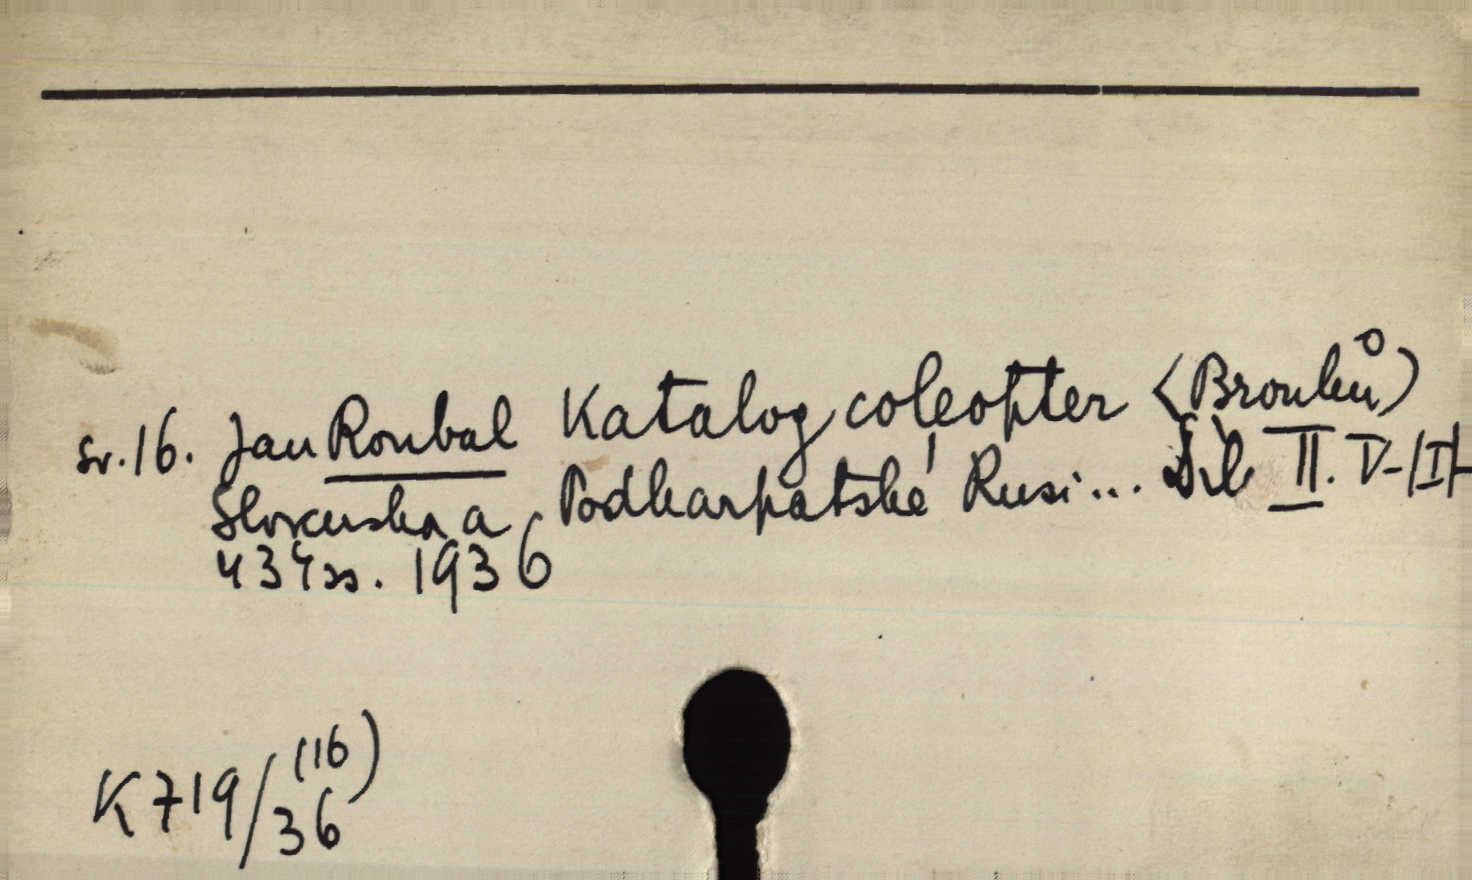 sv. 16. Jan Roubal Katalog coleopter (Brouků)
Slovenska a Podkarpatské Rusi... Díl II.
434 ss. 1936
K 719/(16)
36